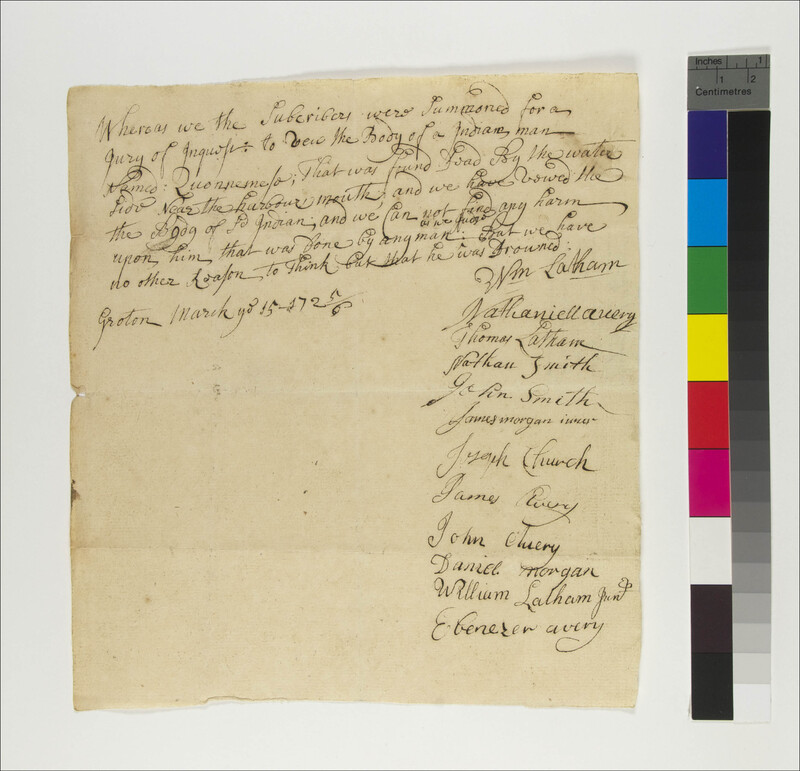 Whereas we the Subcribers were Summoned for a
Jury of Inquest: to Veiu the Body of a Indian man
Named: Quonnemeso; That was found Dead By the water
Side Near the harbour mouth, and we have vewed the
the Body of Sd Indian, and we Can not find any harm
as we Judge
upon him, that was Done by any man: that we have
no other Reason to Think but that he was Drowned:
Groton March ye 15-172 5/6
Wm Latham
Nathaniell avery
Thomas Latham
Nathan Smith
John Smith
James morgan iuner
Joseph Church
James Avery
John Avery
Daniel morgan
William Latham Junr
Ebenezer avery
Inches 1
1 2
Centimetres